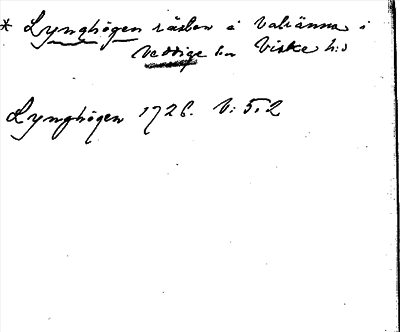 * Lynghögen råsben i Valtänna i
Veddige sn Viske h:d
Lynghögen 1726. V: 5,2